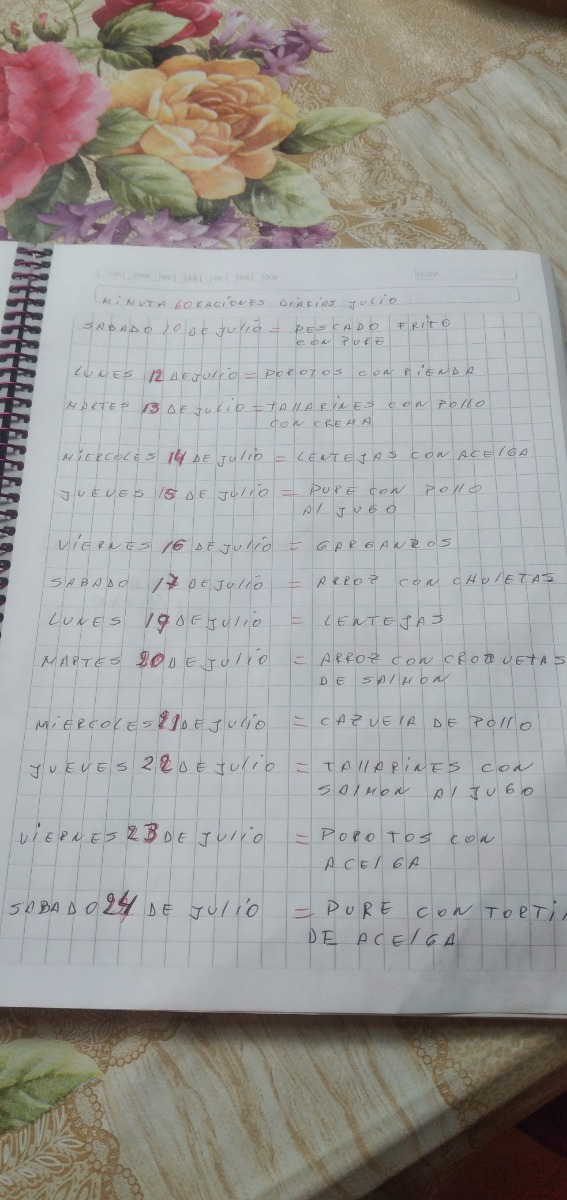 FECHA
MINUTA 60 RACIONES DIARIAS JULIO
SABADO 10 DE JULIO = PESCADO FRITO
CON PURE
LUNES 12 DE JULIO = POROTOS CON RIENDA
MARTES 13 DE JULIO = TALLARINES CON POLLO
CON CREMA
MIERCOLES 14 DE JULIO = LENTEJAS CON ACELGA
JUEVES 15 DE JULIO = PURE CON POLLO
AL JUGO
VIERNES 16 DE JULIO = GARGANZOS
SABADO 17 DE JULIO = ARROZ CON CHULETAS
LUNES 19 DE JULIO = LENTEJAS
MARTES 20 DE JULIO = ARROZ CON CROQUETAS
DE SALMON
MIERCOLES 21 DE JULIO = CAZUELA DE POLLO
JUEVES 22 DE JULIO = TALLARINES CON
SALMON AL JUGO
VIERNES 23 DE JULIO = POROTOS CON
ACELGA
SABADO 24 DE JULIO = PURE CON TORTI
DE ACELGA